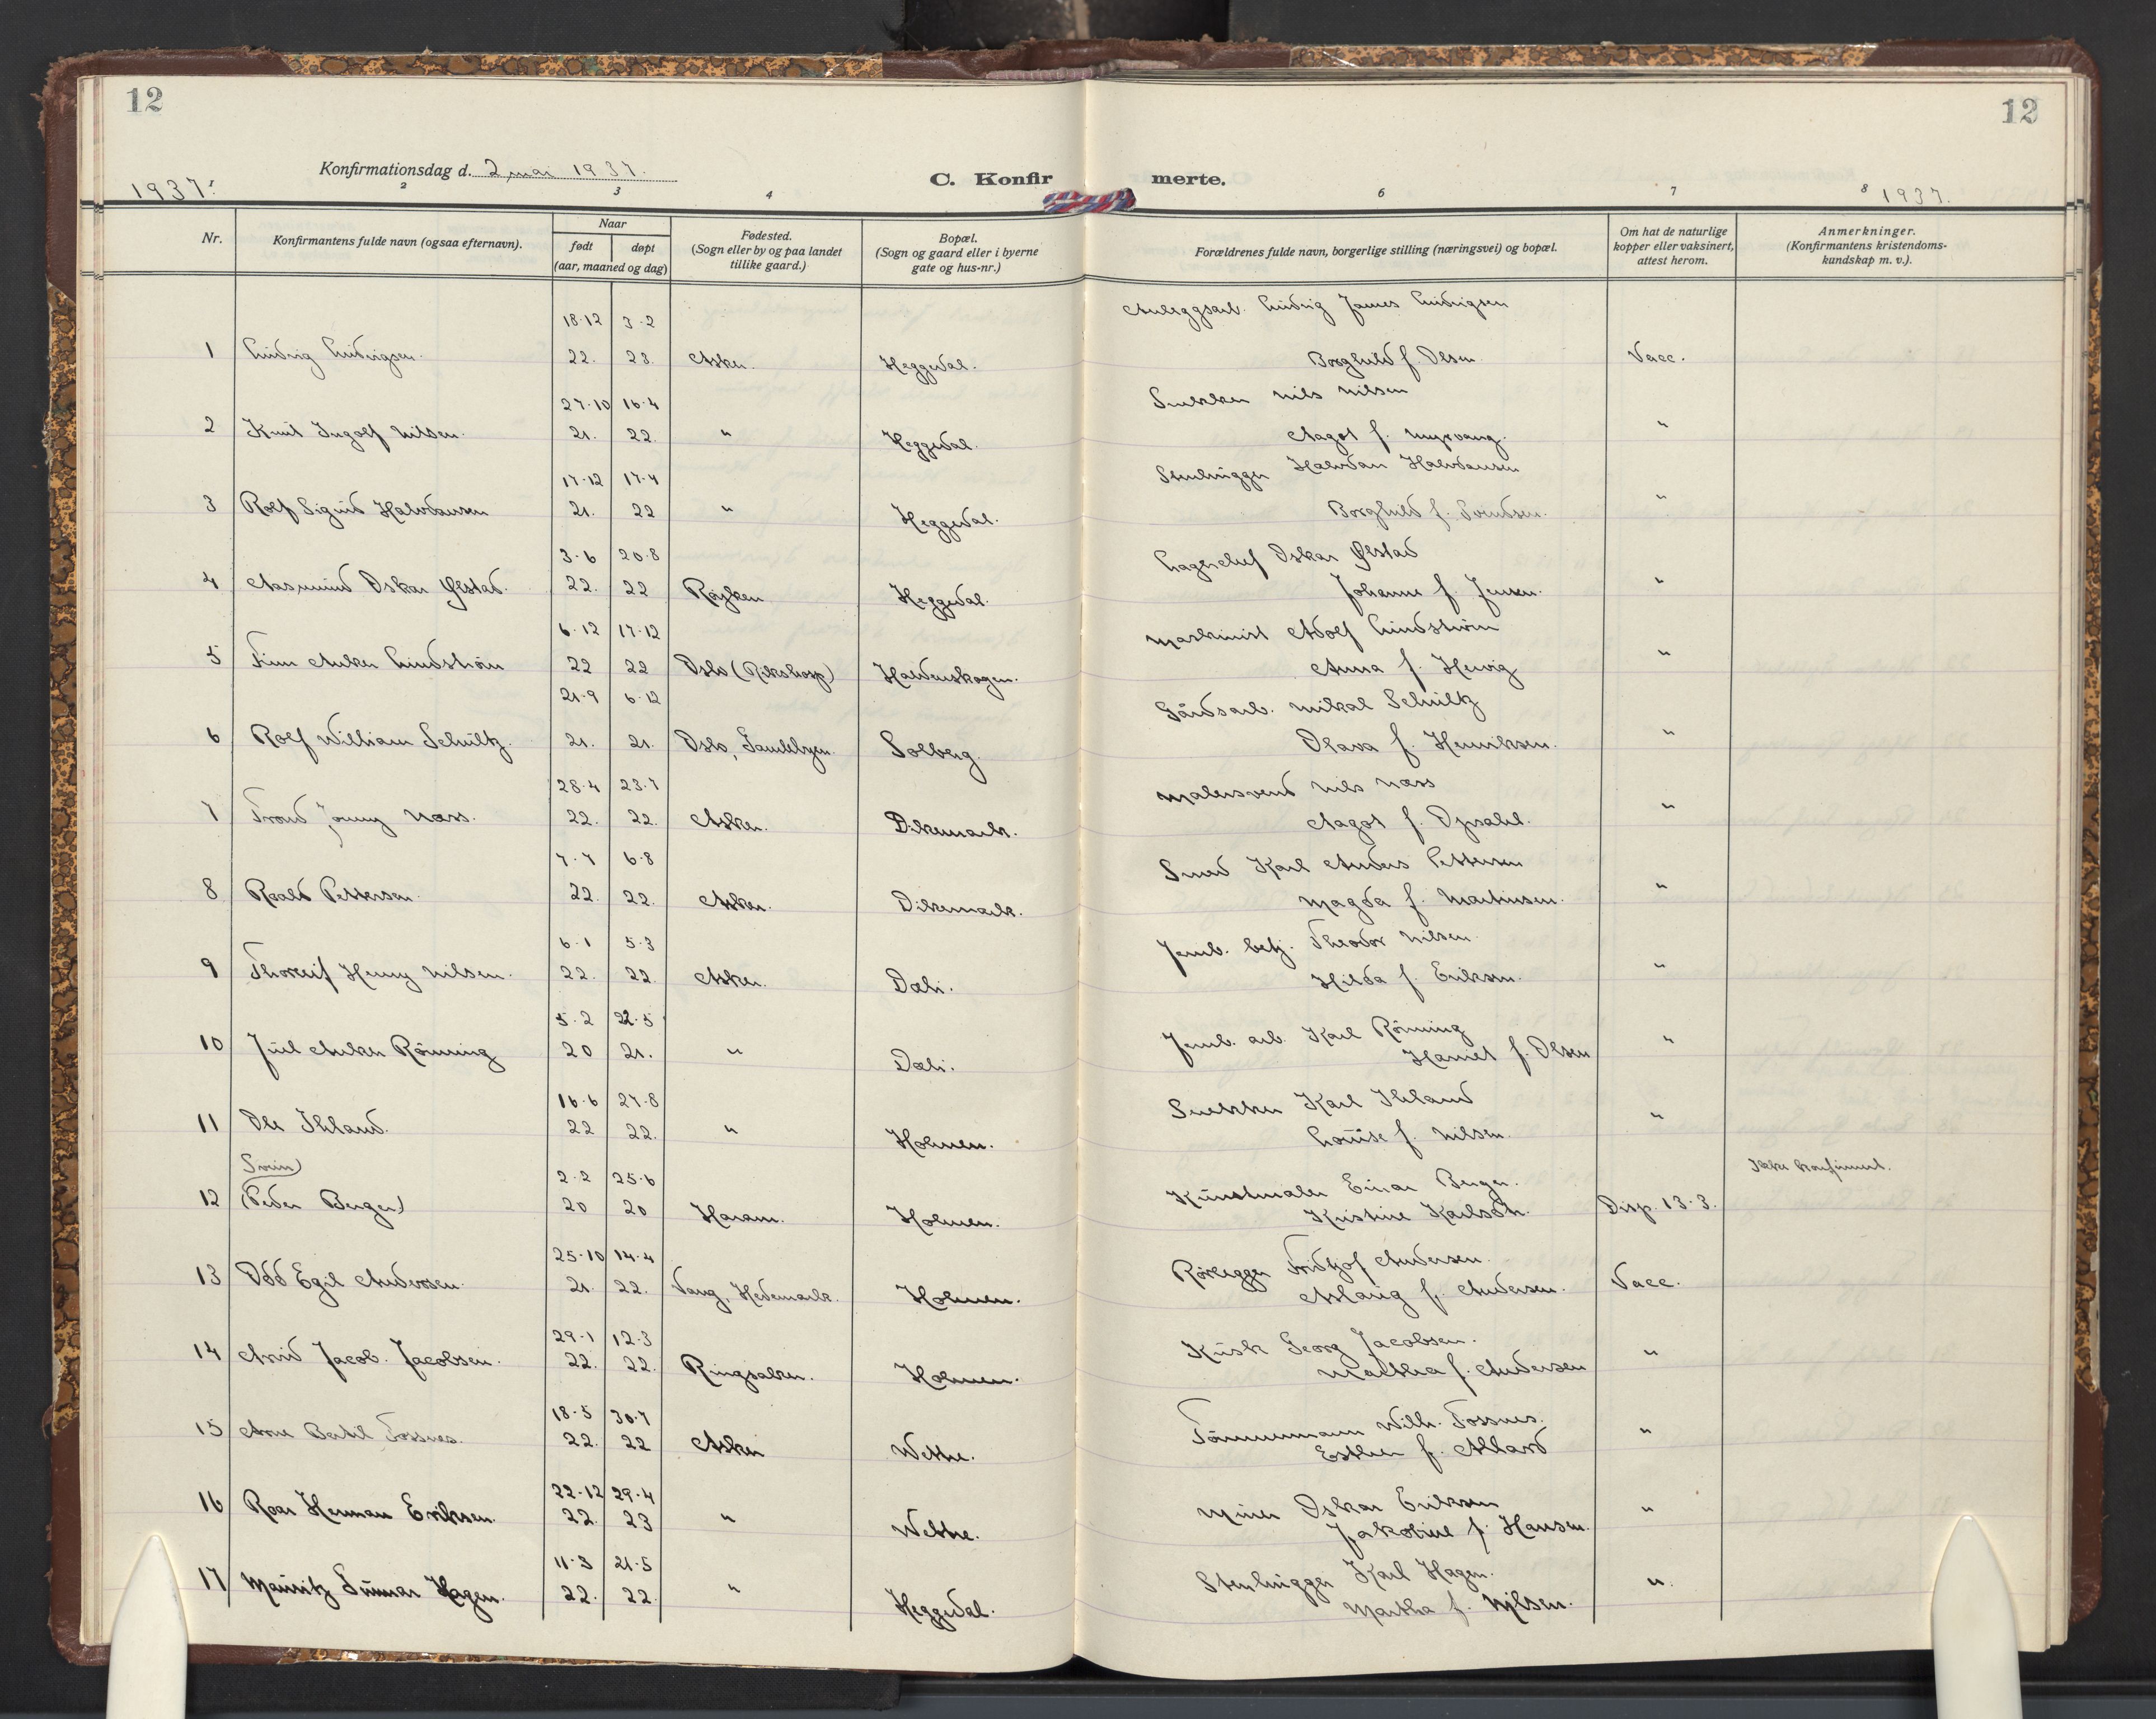 12
12
Konfirmationsdag d. 2 mai 1937.
C. Konfirmerte.
1937.
2 3 4 6 7 8 1937.
Nr.
Konfirmantens fulde navn (ogsaa efternavn).
Naar
født døpt
(aar, maaned og dag)
Fødested.
(Sogn eller by og paa landet
tillike gaard.)
Bopæl.
(Sogn og gaard eller i byerne
gate og hus-nr.)
Forældrenes fulde navn, borgerlige stilling (næringsvei) og bopæl.
Om hat de naturlige
kopper eller vaksinert,
attest herom.
Anmerkninger.
(Konfirmantens kristendoms-
kundskap m. v.).
18·12 3·2 Anleggsarb. Ludvig James Ludvigsen
1 Ludvig Ludvigsen. 22. 23. Asker. Heggedal. Borghild f. Olsen Vacc.
27·10 16·4 Snekker Nils Nilsen
2 Knut Ingolf Nilsen. 21. 22. " Heggedal. Aagot f. Myrvang. "
17·12 17·4 Stenhugger Halvdan Halvdansen
3 Rolf Sigurd Halvdansen 21. 22 " Heggedal. Borghild f. Svendsen. "
3·6 20·8 Lagerchef Oskar Ølstad
4 Aasmund Oskar Ølstad. 22. 22 Røyken Heggedal. Johanne f. Jensen. "
6·12 17·12 Maskinist Adolf Lindstrøm
5 Finn Anker Lindstrøm 22 22 Oslo (Rikshosp) Haldenskogen. Anna f. Hervig "
21·9 6·12 Gårdsarb. Mikal Schultz
6 Rolf William Schultz. 21. 21. Oslo, Gamlebyen. Solberg. Olava f. Henriksen. "
28·4 23·7 Malersvend Nils Næss
7 Trond Jonny Næss. 22. 22. Asker. Dikemark. Aagot f. Dyrdahl. "
7·7 6·8 Smed Karl Anders Pettersen
8 Roald Pettersen. 22. 22. Asker. Dikemark. Magda f. Martinsen. "
6·1 5·3 Jernb. betj. Theodor Nilsen
9 Thorleif Henry Nilsen. 22. 22. Asker. Dæli. Hilda f. Eriksen. "
5·2 22·5 Jernb. arb. Karl Rönning
10 Juel Anker Rönning 20 21. " Dæli. Harriet f. Olsen "
16·6 27·8 Snekker Karl Ihland
11 Ole Ihland. 22 22. " Holmen. Louise f. Nilsen. "
Svein) 2·2 25·6 Kunstmaler Einar Berger. Ikke konfirmert.
12 (Peder Berger) 20 20 Haram. Holmen. Kristine Karlsdtr. Disp. 13·3.
25·10 14·4 Rørlegger Fridtjof Andersen.
13 Odd Egil Andersen. 21. 22. Vang, Hedemark. Holmen. Aslaug f. Andersen. Vacc.
29·1 12·3 Kusk Georg Jacobsen.
14 Arvid Jacob. Jacobsen. 22. 22. Ringsaker. Holmen. Malthea f. Andersen "
18·5 30·7 Tömmermann Wilh. Fossnes.
15 Arne Bertil Fossnes. 22. 22 Asker Wettre. Esther f. Ahlard "
22·12 29·4 Minér Oskar Eriksen
16 Roar Herman Eriksen. 22. 23 " Wettre. Jakobine f. Hansen. "
11·3 21·5 Stenhugger Karl Hagen.
17 Mauritz Gunnar Hagen. 22. 22. " Heggedal. Martha f. Nilsen. "